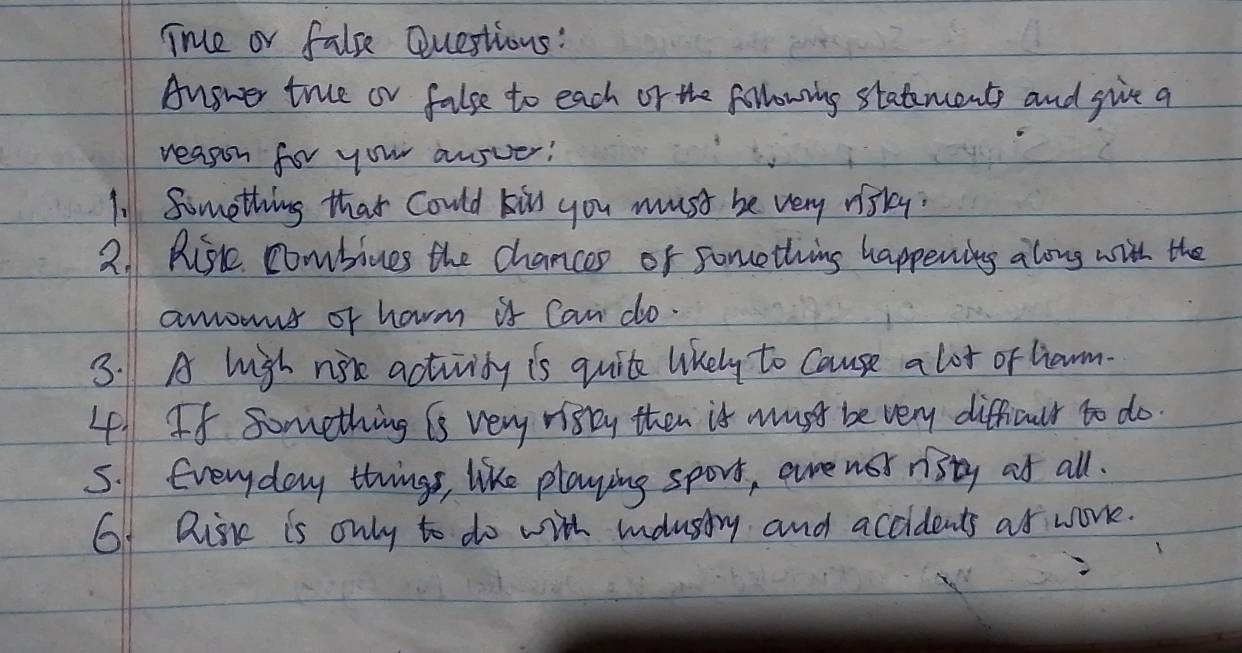 True or false Questions:
Answer true or false to each of the following statements and give a
reason for your answer:
1. Something that could kill you must be very risky.
2. Risk combines the chances of something happening along with the
amount of harm it can do.
3. A high risk activity is quite likely to cause a lot of harm.
4. If something is very risky then it must be very difficult to do.
5. Everyday things, like playing sport, are not risky at all.
6. Risk is only to do with industry and accidents at work.